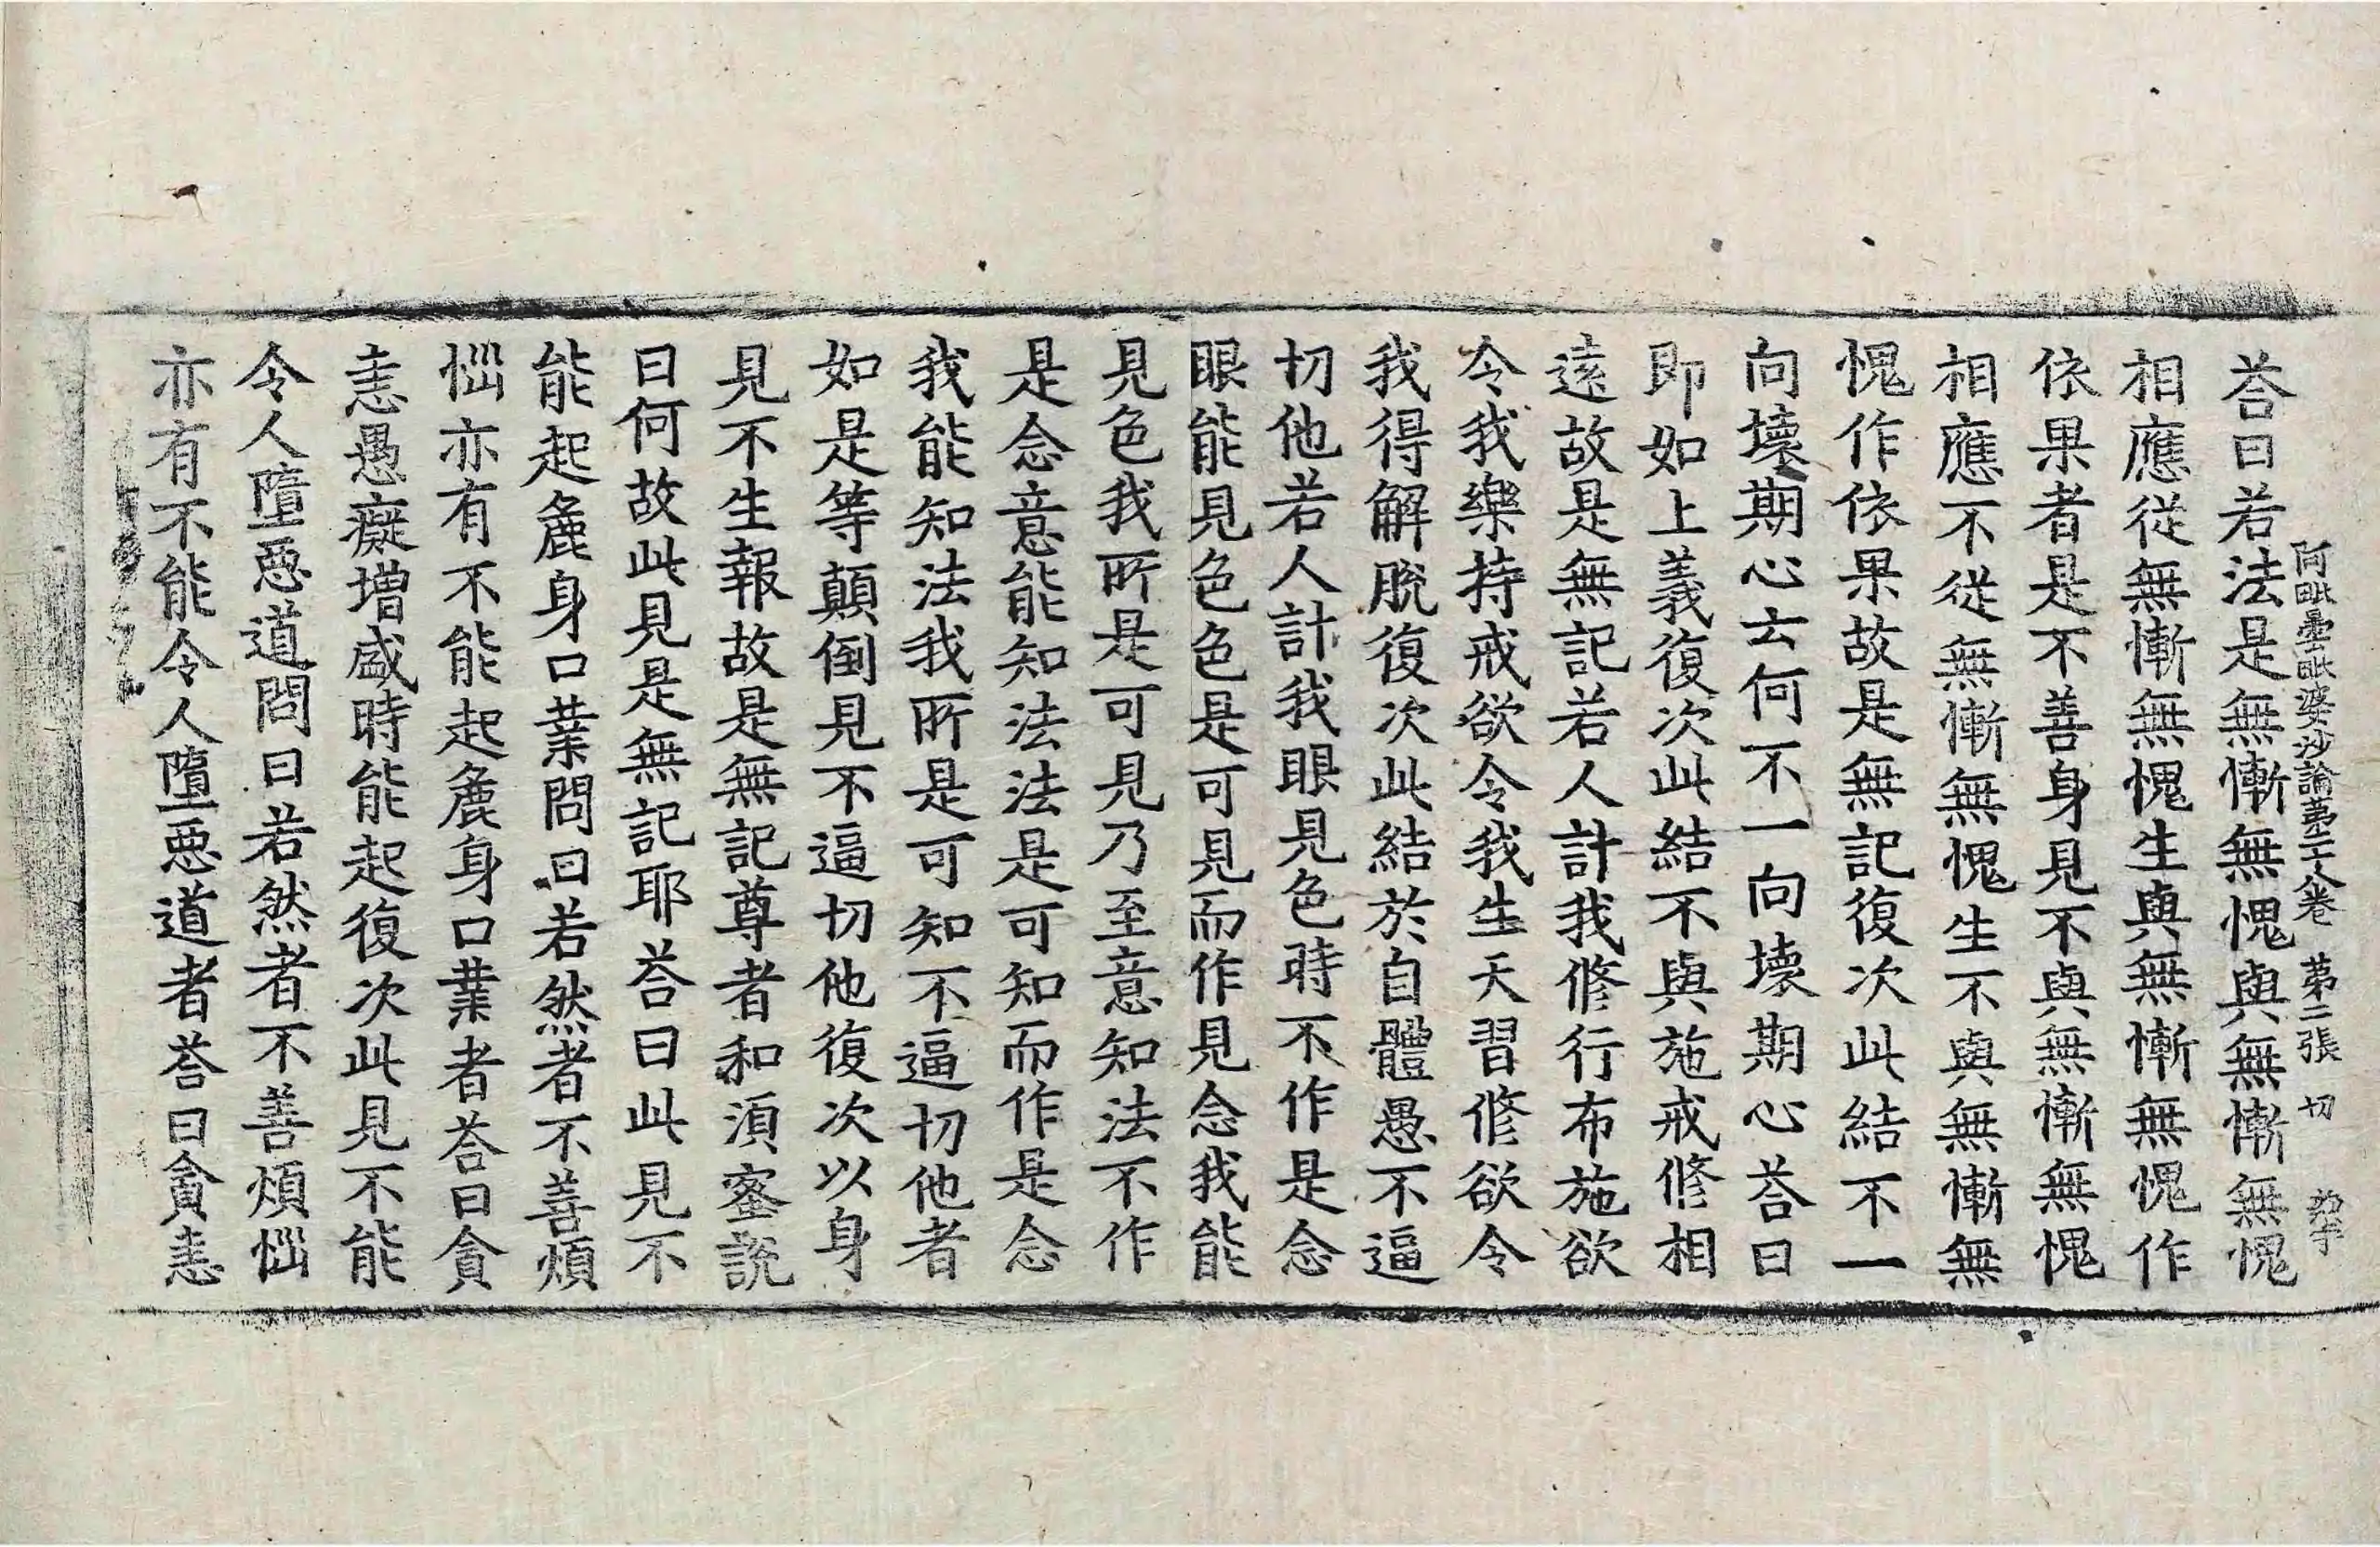 阿毗曇毗婆沙論苐二十八卷 苐二張 切
荅曰若法是無慚無愧與無慚無愧
相應從無慚無愧生與無慚無愧作
依果者是不善身見不與無慚無愧
相應不從無慚無愧生不與無慚無
愧作依果故是無記復次此結不一
向壞期心云何不一向壞期心荅曰
即如上義復次此結不與施戒修相
遠故是無記若人計我修行布施欲
令我樂持戒欲令我生天習修欲令
我得解脫復次此結於自體愚不逼
切他若人計我眼見色時不作是念
眼能見色色是可見而作見念我能
見色我所是可見乃至意知法不作
是念意能知法法是可知而作是念
我能知法我所是可知不逼切他者
如是等顛倒見不逼切他復次以身
見不生報故是無記尊者和湏蜜說
曰何故此見是無記耶荅曰此見不
能起麁身口業問曰若然者不善煩
惱亦有不能起麁身口業者荅曰貪
恚愚癡增盛時能起復次此見不能
令人墮惡道問曰若然者不善煩惱
亦有不能令人墮惡道者荅曰貪恚